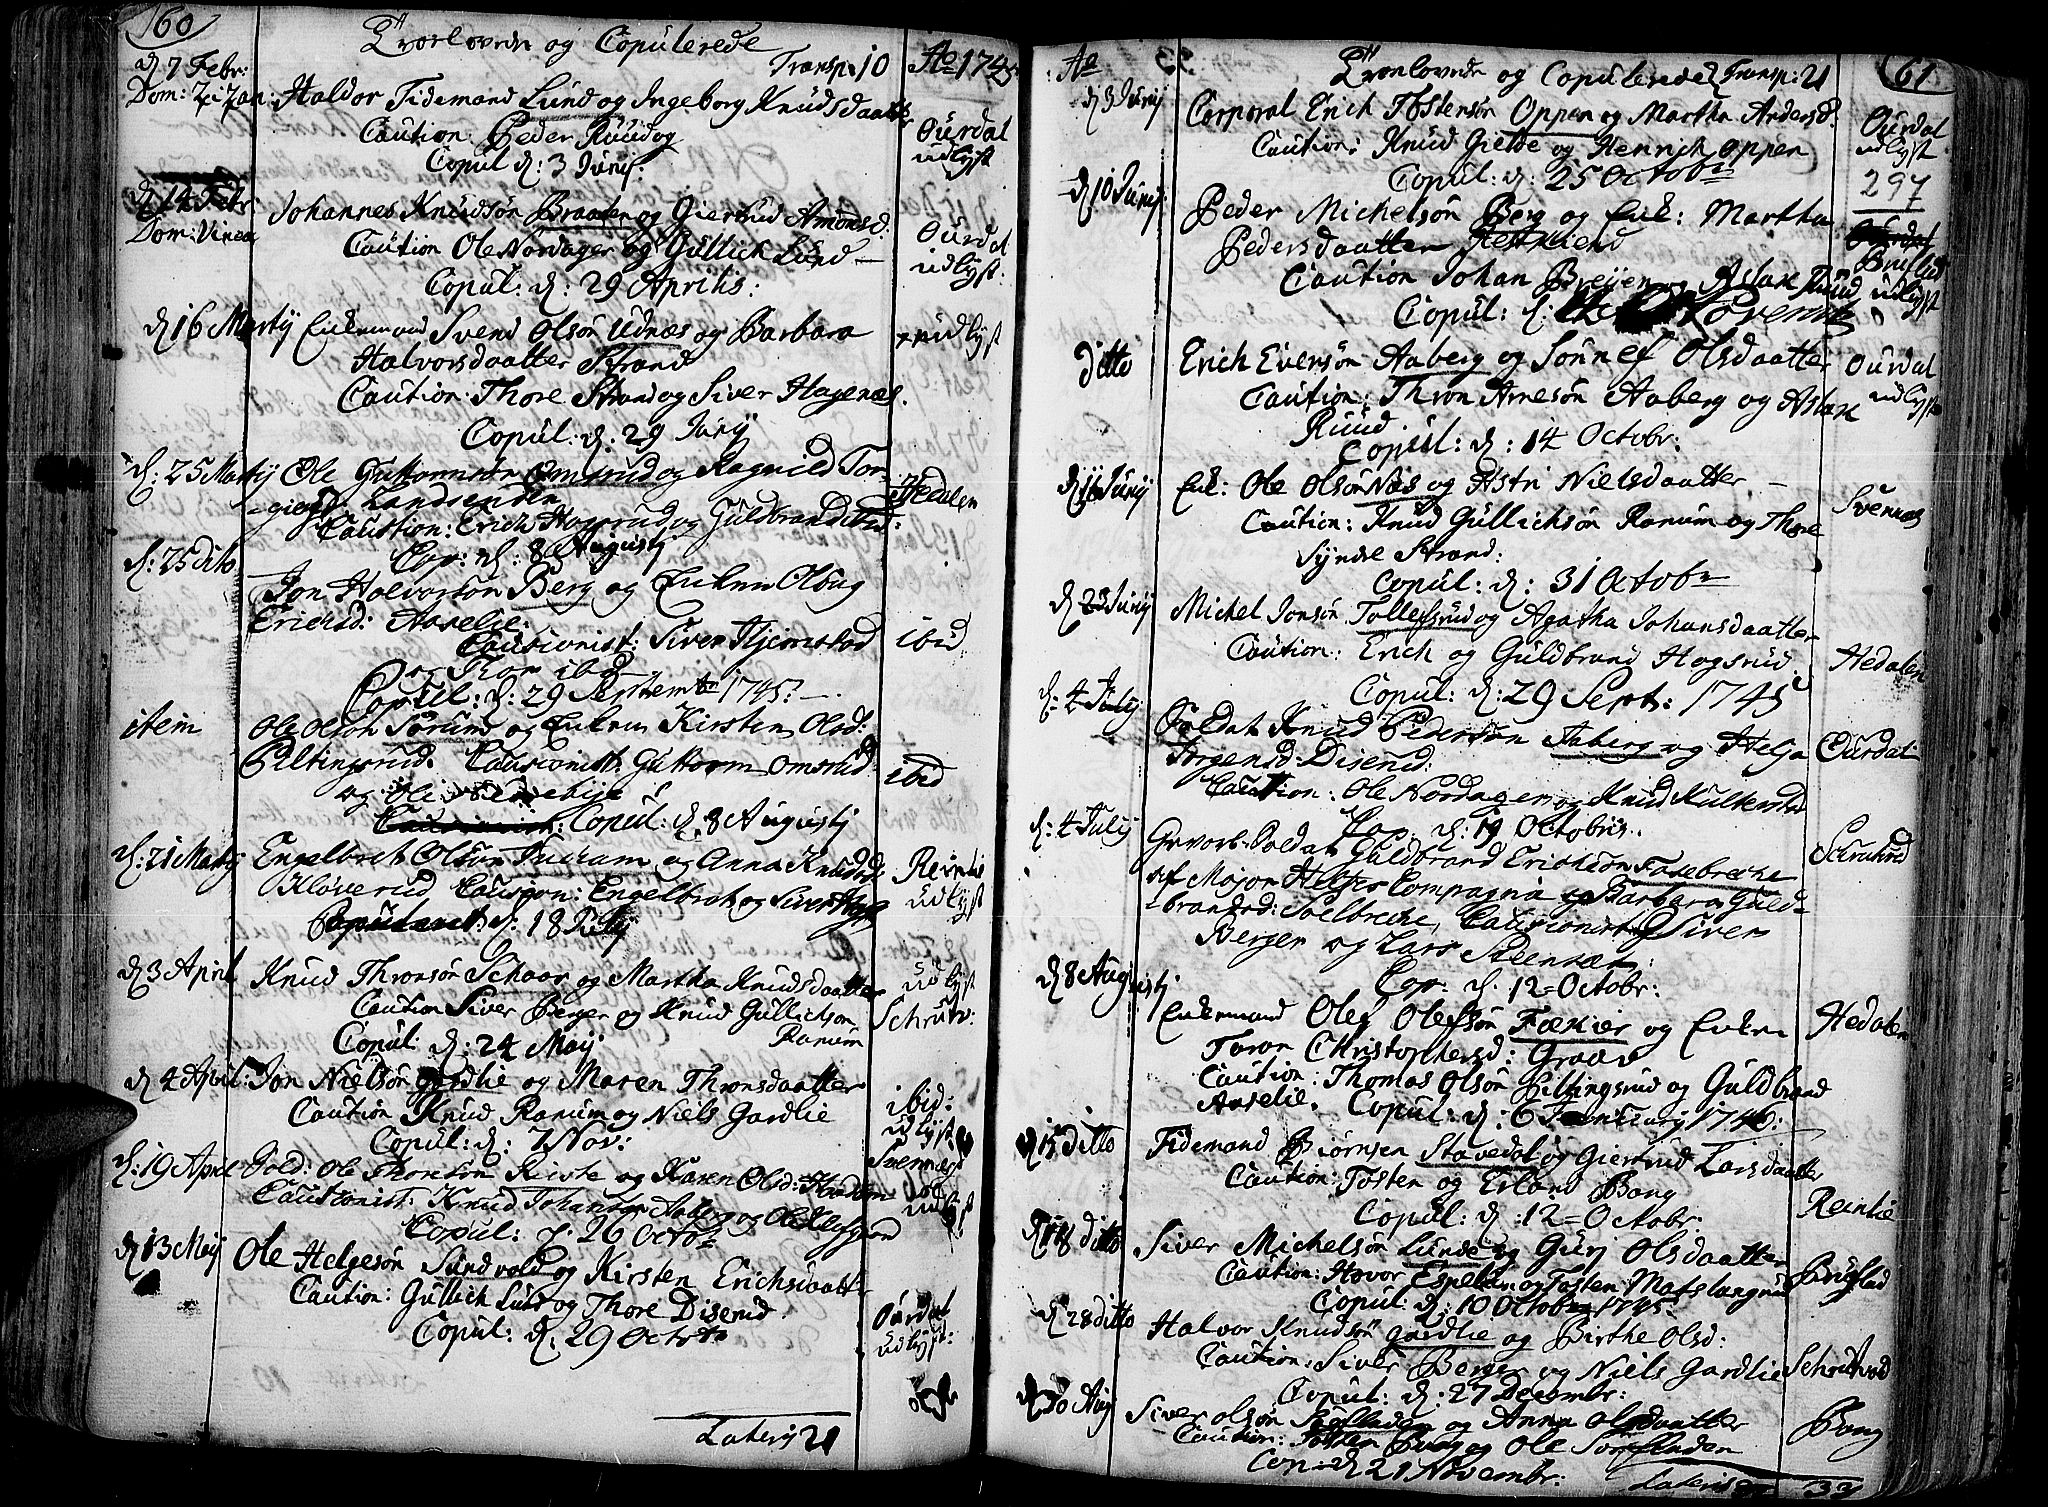 160
Trorlovede og Copulerede
Transp: 10 Ao 1745
d 7 Febr:
Dom: Haldor Tidemand Lund og Ingeborg Knudsdaatter
Caution: Peder Ruud og
Copul d: 3 Junij.
Ourdal
udlyst
d 14 Febr
Dom: Vinea
Johannes Knudsøn Braaten og Giertrud Amonsd.
Caution Ole Nordager og Gullich Lund
Copul: d: 29 Aprilis:
Ourdal
udlyst:
d 16 Martij Enkemand Svend Olsøn Udnæs og Barbara
Halvorsdaatter Strand
Caution: Thore Strand og Siver Hagenæs.
Copul: d: 29 Junij
udlyst
d: 25 Martij Ole Guttormsøn Omsrud og Ragnild Tor-
Landsenden
Caution: Erich Hogsrud og Guldbrand ibid:
Cop: d: 8 Augustj
Hedalen
d: 25 dito
Jon Halvorsøn Berg og Enken Olaug
Erichsd: Aaselie:
Cautionist: Siver Hjemstad
og Thor ibid
Copul: d: 29 Septembr 1745:
ibid
item Ole Olsøn Sørum og Enken Kirsten Olsd:
Piltingsrud. Cautionist: Guttorm Omsrud
og Ole
Copul: d. 8 Augustj
ibid
d: 21 Martij Engelbret Olsøn og Anna Knudsd
Kløverud Caution: Engelbret og Siver
d. 18 Julij
Reinlie
udlyst
d 3 April Knud Thronsøn Schaar og Martha Knudsdaatter
Caution Siver Berger og Knud Gullichsøn
Ranum
Copul: d: 24 Maij
udlyst
Schrutv:
d 4 April: Jon Nielsøn Gardlie og Maren Thronsdaatter
Caution Knud Ranum og Niels Gardlie
Copul: d: 7 Nov:
ibid:
udlyst
d: 19 April Sold: Ole Thorsøn Riste og Karen Olsd:
Cautionist: Knud Johansøn Aaberg og Ole
Copul: d. 26 Octobr
Svennæs
udlyst
d 13 Maij
Ole Helgesøn Sundvold og Kirsten Erichsdaatter
Caution: Gullich Lund og Thore Diserud.
Copul: d. 29 Octobr
Ourdal
udlyst:
Lateris 21
Ao Trorlovede og Copulerede Transp: 21 161
d 3 Junij
Corporal Erich Tostensøn Oppen og Martha Andersd.
Caution: Knud Gielde og Henrich Oppen
Copul: d: 25 Octobr
Ourdal
udlyst
297
d 10 Junij
Peder Michelsøn Berg og Enk: Martha
Pedersdaatter
Caution Johan Breijen og Aslak Ruud
Copul: d: Novembr
udlyst
ditto Erich Eversøn Aaberg og Sønnef Olsdaatter
Caution: Thron Arnesøn Aaberg og Aslak
Ruud.
Copul: d: 14 Octobr:
Ourdal
udlyst
d 16 Junij Enk: Ole Olsøn Næs og Astri Nielsdaatter
Caution: Knud Gullichsøn Ranum og Thore
Syndre Strand:
Copul: d: 31 Octobr
Svennæs
d 23 Junij Michel Jonsøn Tollefsrud og Agatha Johansdaatter
Caution: Erich og Guldbrand Hogsrud.
Copul: d: 29 Sept: 1745
Hedalen
d: 4 Julij
Soldat Knud Pedersøn Aaberg og Helja
Jørgensd: Diserud:
Caution: Ole Nordager og Knud
Cop: d: 19 Octobris.
Ourdal
d: 4 Julij Gevorb. Soldat Guldbrand Erichsøn Fasebrecke
af Major Compagnia og Barbara Guld-
brandsd: Soelbrecke, Cautionist: Siver
Berger og Lars
Cop: d. 12 = Octobr:
Schrutvod
d 8 Augustj
Enkemand Olef Olefsøn Fækier og Enken
Toron Christophersd: Graav
Caution: Thomas Olsøn Piltingsrud og Guldbrand
Aaselie. Copul: d: 6 Januarij 1746:
Hedalen
d 15 ditto Tidemand Biørnsen Stavedal og Giertrud Larsdaatter
Caution: Tosten og Erland Bang
Copul: d: 12 = Octobr.
Reinlie
d 18 ditto Siver Michelsøn Lunde og Gurj Olsdaatter
Caution: Hovor Espelien og Tosten
Copul: d: 10 Octobr 1745.
Bruflad
d 28 ditto Halvor Knudsøn Gardlie og Birthe Olsd:
Caution: Siver Berger og Niels Gardlie
Copul: d: 27 Decembr:
Schrutvod
d 30 Aug Siver Olsøn og Anna Olsdaatter
Caution: Tosten Bang og Ole
Cop: d 21 Novembr:
Bang
Lateris 33